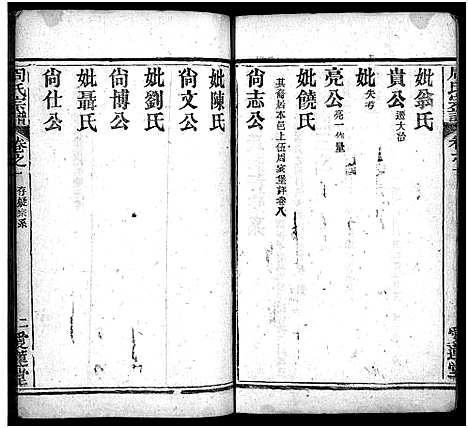 周氏宗譜
妣翁氏
貴公遷大冶
妣失考
亮公亮一作量
妣饒氏
其裔居本邑上伍周家堡詳卷八
尙志公
妣陳氏
尙文公
妣劉氏
尙博公
妣聶氏
尙仕公
周氏宗譜
卷之一
存疑宗系
二
愛蓮堂